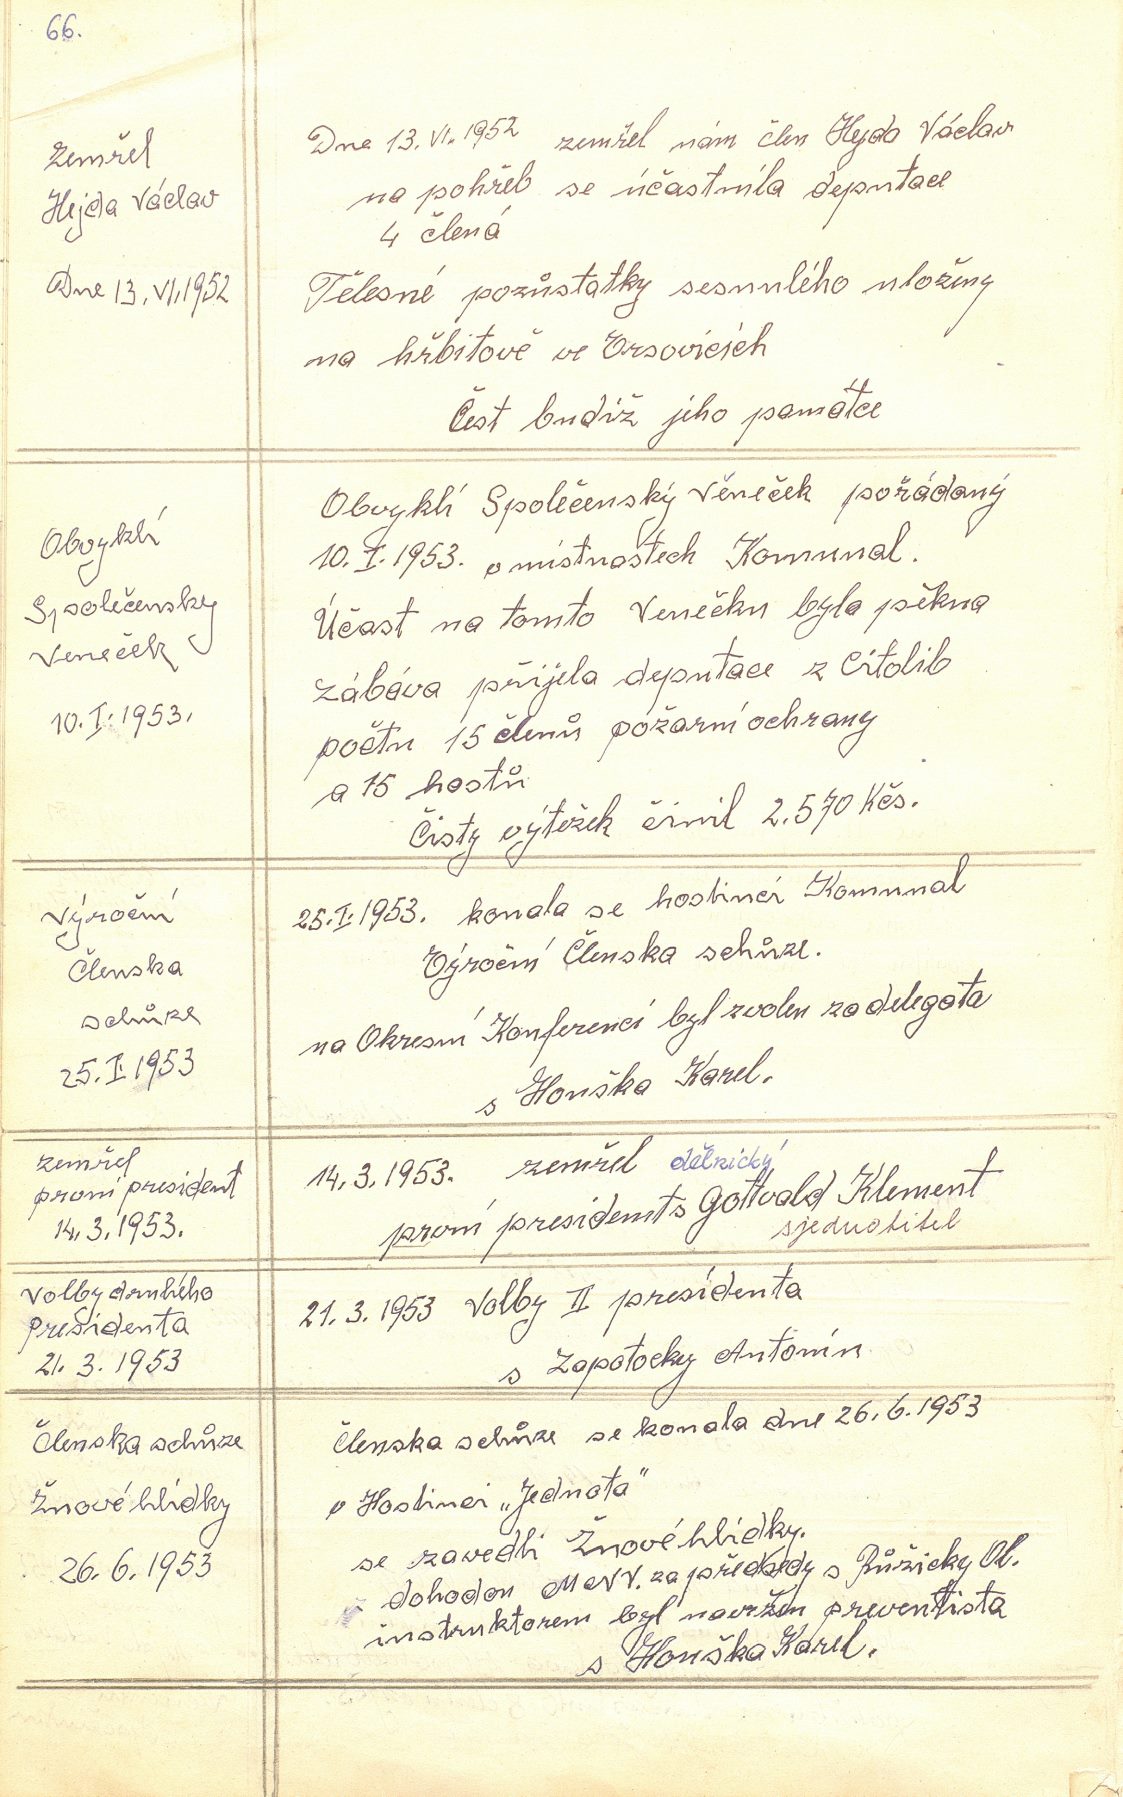 66.
zemřel
Hejda Václav
Dne 13. VI. 1952
Dne 13. VI. 1952 zemřel nám člen Hejda Václav
na pohřeb se účastnila deputace
4 člená
Tělesné pozůstatky sesnulého uloženy
na hřbitově ve Brsovicích
Čest budiž jeho památce
Obvyklí
Společensky
Veneček
10. I. 1953.
Obvyklí Společenský Věneček pořádaný
10. I. 1953. v místnostech Komunal.
Účast na tomto Venečku byla pěkna
zábáva přijela deputace z Citolib
počtu 15 členů požarní ochrany
a 15 hostů
Čisty výtežek činil 2.570 Kčs.
Výroční
Členska
schůze
25. I. 1953
25. I. 1953. konala se hostinci Komunal
Výroční Členska schůze.
na Okresní Konferenci byl zvolen za delegata
s Houška Karel.
zemřel
první president
14. 3. 1953.
14. 3. 1953. zemřel dělnický
první presidemts Gottvald Klement
sjednotitel
Volby druhého
Presidenta
21. 3. 1953
21. 3. 1953 Volby II presídenta
s Zapotocky Antonín
Členska schůze
Žnové hlídky
26. 6. 1953
Členska schůze se konala dne 26. 6. 1953
v Hostinci „Jednota"
se zavedli Žnové hlídky.
dohodou MNV. za předsedy s Růžicky Ol.
instruktorem byl navržen preventista
s Houška Karel.